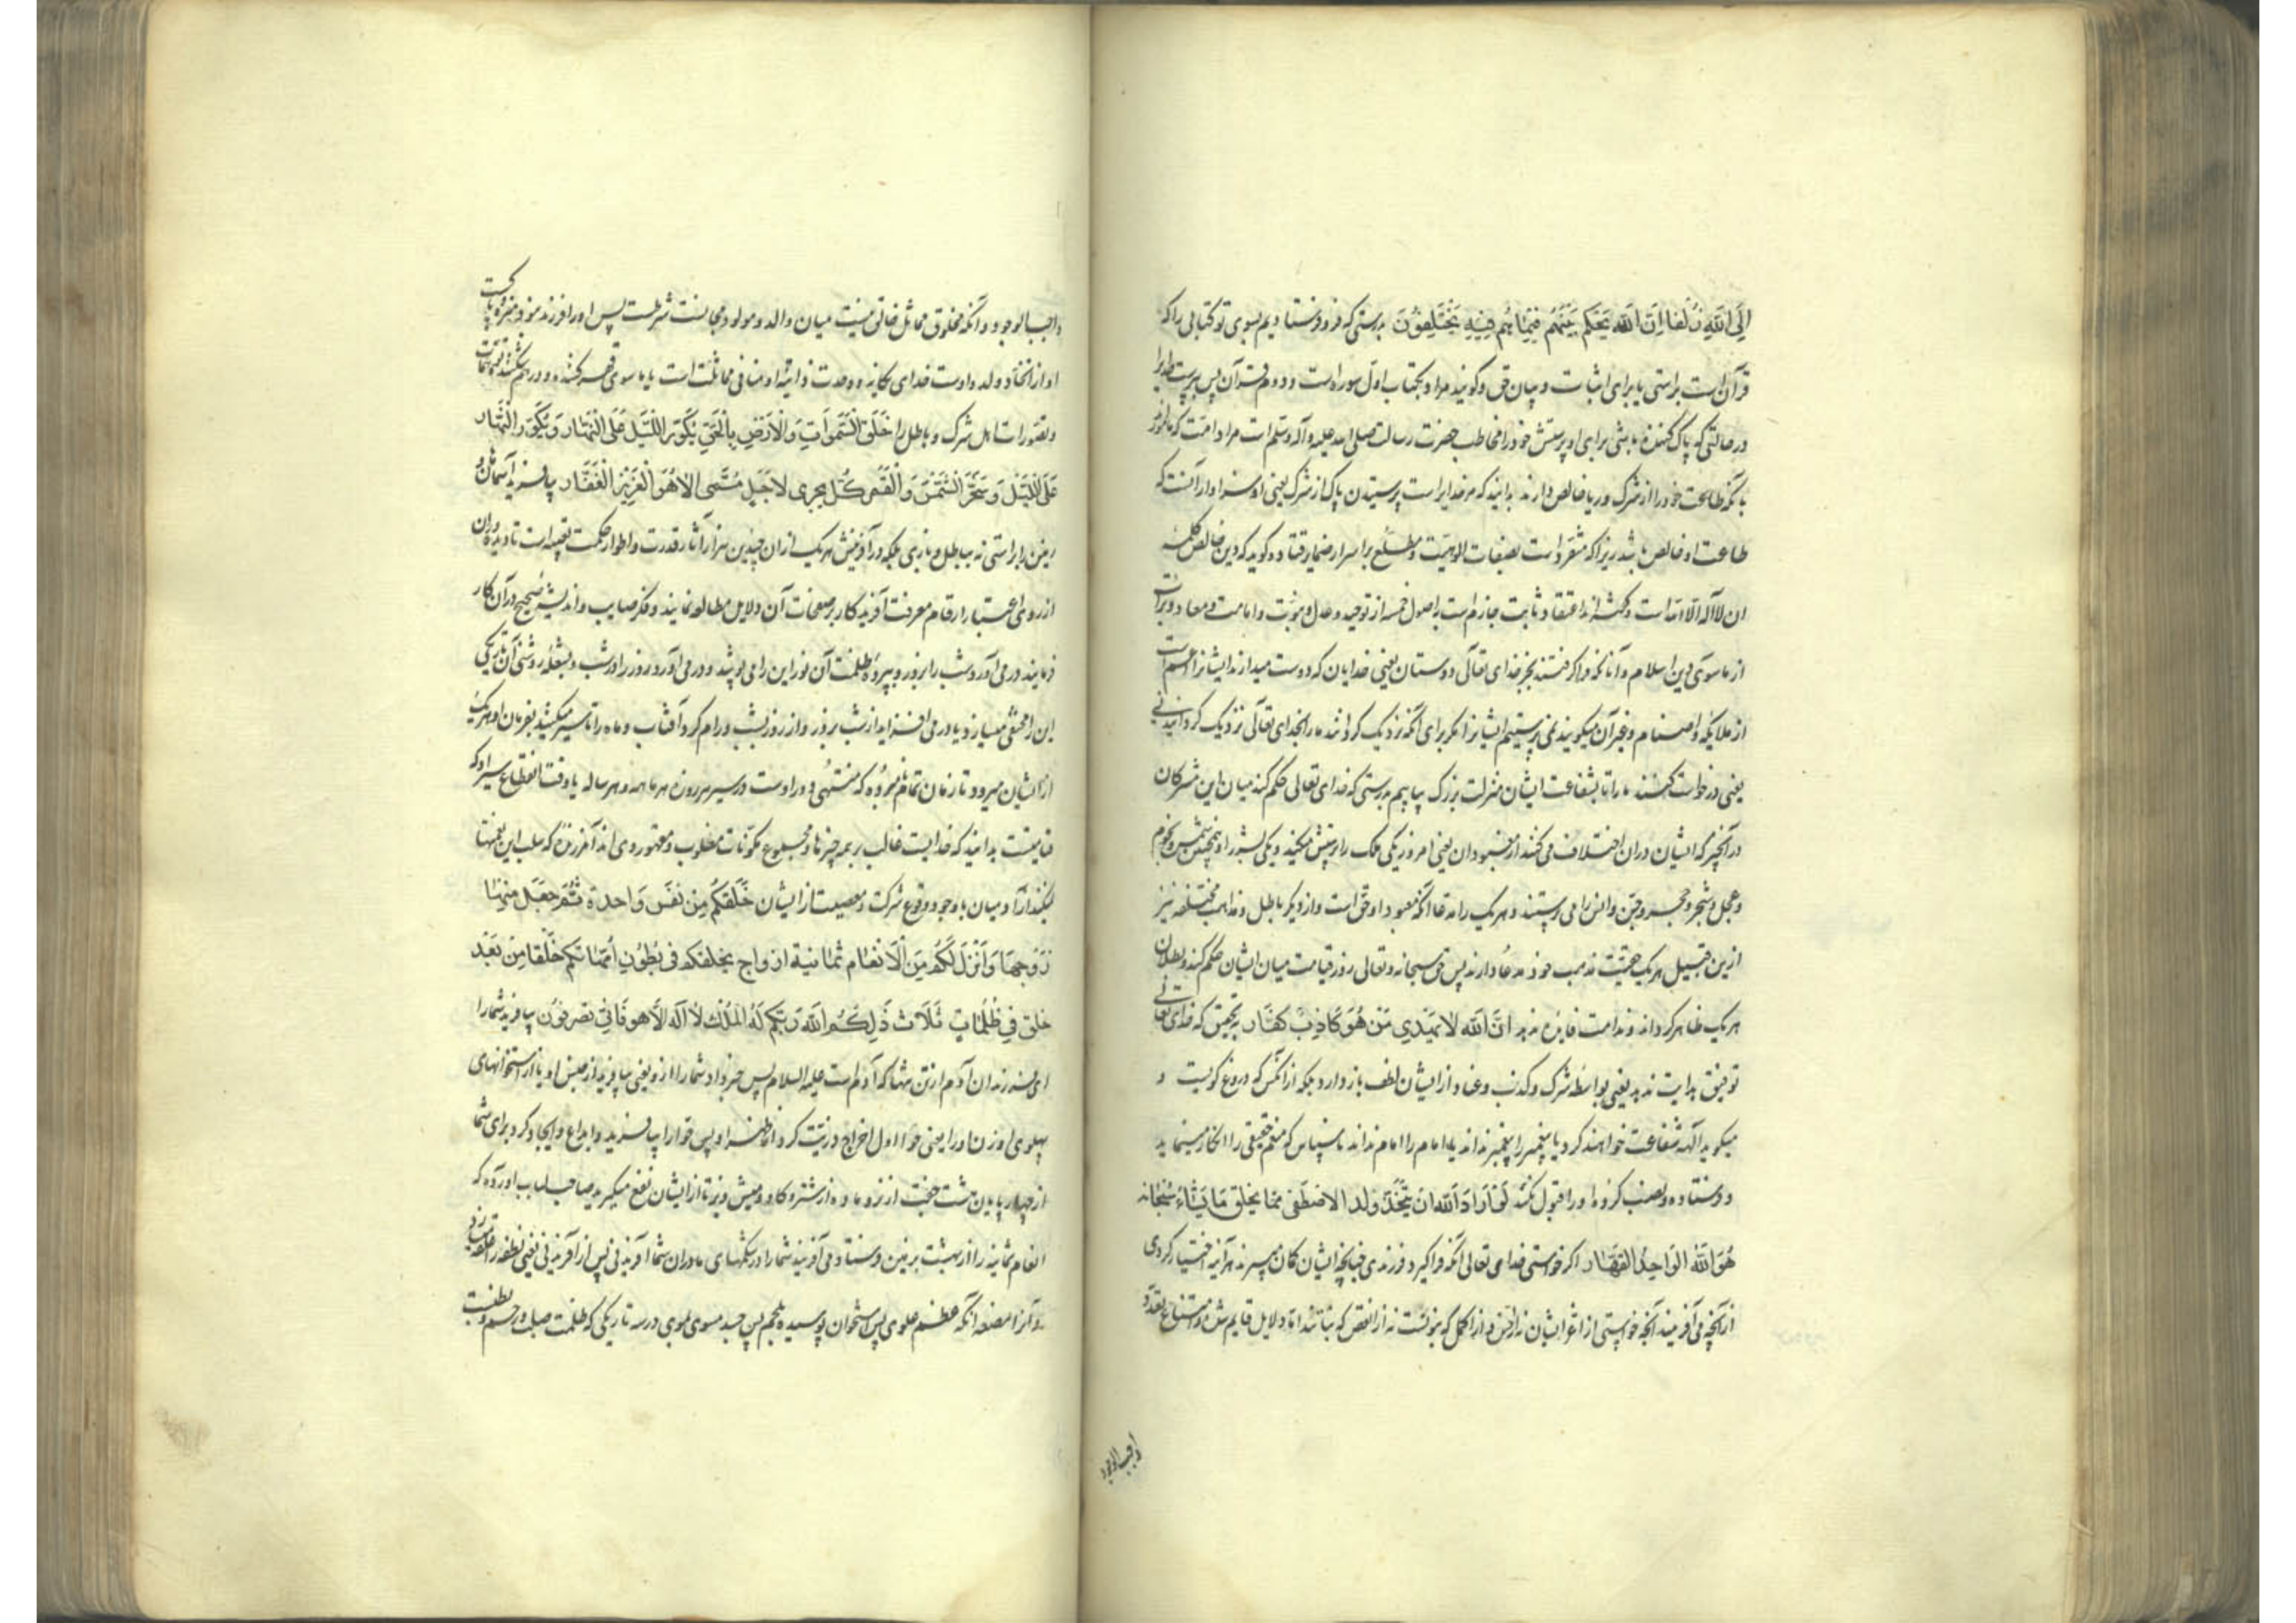 إِلَى اللَّهِ زُلْفَا إِنَّ اللَّهَ يَحْكُمُ بَيْنَهُمْ فِيمَا هُمْ فِيهِ يَخْتَلِفُونَ بدرستی که فرو فرستادیم بسوی تو کتابی را که
قرآن است براستی یا برای اثبات و بیان حق و گویند مراد بکتاب اول سوره است و دوم قرآن پس بپرست خدایرا
در حالتی که پاک کننده باشی برای او پرستش خود را مخاطب حضرت رسالت صلی الله علیه و آله و سلم است مراد امت که مامور
بآنکه طاعت خود را از شرک و ریا خالص دارند بدانید که مر خدایراست پرستیدن پاک از شرک یعنی او سزاوار آنست که
طاعت او خالص باشد زیرا که متفرد است بصفات الوهیت و مطلع بر اسرار ضمایر قتاده کوید که دین خالص کلمهٔ
ان لا آله الا الله است و اعتقاد ثابت جازم است باصول خمسه از توحید و عدل و نبوت و امامت و معاد و برات
از ماسوی دین اسلام و آنانکه فرا کرفتند بجز خدای تعالی دوستان یعنی خدایان که دوست میدارند ایشانرا
از ملایکه و اصنام و غیر آن میکویند نمی پرستیم ایشانرا مکر برای آنکه نزدیک کردانند ما را بخدای تعالی نزدیک کردانیدنی
یعنی درخواست کنند ما را تا بشفاعت ایشان منزلت بزرک بیابیم بدرستی که خدای تعالی حکم کند میان این مشرکان
در آنچیز که ایشان در ان اختلاف می کنند از معبودان یعنی امروز یکی ملک را پرستش میکند و یکی بشر را و همچنین شمس و نجوم
و عجل و شجر و حجر و جن و انس را می پرستند و هر یک را مدعا آنکه معبود او حق است و از دیکر باطل و مذاهب مختلفه نیز
ازین قبیل هر یک حقیت مذهب خود مدعا دارند پس حق سبحانه و تعالی روز قیامت میان ایشان حکم کند و بطلان
هر یک ظاهر کرداند و ندامت فایده ندهد إِنَّ اللَّهَ لَا يَهْدِي مَنْ هُوَ كَاذِبٌ كَفَّار بتحقیق که خدای تعالی
توفیق هدایت ندهد یعنی بواسطه شرک و کذب و عناد از ایشان لطف باز دارد بلکه از انکس که دروغ کویست و
میکوید آلهه شفاعت خواهند کرد یا پیغمبر را پیغمبر نداند یا امام را امام نداند ناسپاس که منعم حقیقی را انکار مینماید
و فرستاده و نصب کرده او را قبول نکند لَوْ أَرَادَ اللَّهُ أَنْ يَتَّخِذَ وَلَدًا لَاصْطَفَى مِمَّا يَخْلُقُ مَا يَشَاءُ سُبْحَانَهُ
هُوَ اللَّهُ الْوَاحِدُ الْقَهَّارُ اکر خواستی خدای تعالی آنکه فرا کیرد فرزندی چنانچه ایشان کمان میبرند هر آینه اختیار کردی
از آنچه می آفریند آنچه خواستی از اعز ایشان نه از اخس و از اکمل که بنونست نه از انقص که بناتند اما دلایل قایم شده بر امتناع تعدد
واجب الوجود
واجب الوجود و آنکه مخلوق مماثل خالق نیست میان والد و مولود مجانست شرطست پس او را فرزند نبود منزه
او از اتخاذ ولد و اوست خدای یکانه و وحدت ذاتیه او منافی مماثلت است با ماسوی قهر کننده و در هم شکننده
و تصورات اهل شرک و باطل را خَلَقَ السَّمَوَاتِ وَالْأَرْضِ بِالْحَقِّ يُكَوِّرُ اللَّيْلَ عَلَى النَّهَارِ وَيُكَوِّرُ النَّهَارَ
عَلَى اللَّيْلِ وَسَخَّرَ الشَّمْسَ وَالْقَمَرَ كُلٌّ يَجْرِي لِأَجَلٍ مُسَمًّى أَلَا هُوَ الْعَزِيزُ الْغَفَّارُ بیافرید آسمانها و
زمین را براستی نه بباطل و بازی بلکه در آفرینش هر یک از ان چندین هزار آثار قدرت و اطوار حکمت تعبیه است تا دیده وران
از روی اعتبار ارقام معرفت آفریدکار بر صفحات آن دلایل مطالعه نمایند و فکر صایب و اندیشه صحیح در آن کار
فرمایند در می آورد شب را بروز و بپرده ظلمت آن نور این را می پوشد و در می آورد روز را در شب و بشعله روشنی آن تاریکی
این را مختفی میسازد یا در می افزاید از شب بروز و از روز بشب و رام کرد آفتاب و ماه را تا سیر میکنند بفرمان او هر یک
از ایشان میرود تا زمان تمام نامبرده که منتهی دور اوست در سیر هر روزه هر ماهه و هر ساله یا وقت انقطاع سیر او که
قیامتست بدانید که خدایست غالب بر همه چیزها و مجموع مکونات مغلوب و مقهور وی اند آمرزنده که سلب این نعمتها
نکند از آدمیان با وجود وقوع شرک و معصیت از ایشان خَلَقَكُمْ مِنْ نَفْسٍ وَاحِدَةٍ ثُمَّ جَعَلَ مِنْهَا
زَوْجَهَا وَأَنْزَلَ لَكُمْ مِنَ الْأَنْعَامِ ثَمَانِيَةَ أَزْوَاجٍ يَخْلُقُكُمْ فِي بُطُونِ أُمَّهَاتِكُمْ خَلْقًا مِنْ بَعْدِ
خَلْقٍ فِي ظُلُمَاتٍ ثَلَاثٍ ذَلِكُمُ اللَّهُ رَبُّكُمْ لَهُ الْمُلْكُ لَا آلَهَ إِلَّا هُوَ فَأَنَّى تُصْرَفُونَ بیافرید شما را
ای فرزندان آدم از تن تنها که آدم است علیه السلام پس جفت او یعنی بیافرید از جنس او یا از استخوانهای
پهلوی او زن او را یعنی حوا اول اخراج ذریت کرد از ظهر او پس حوا را بیافرید و ابداع و ایجاد کرد برای شما
از چهارپایان هشت جفت از نر و ماده از شتر و کاو و میش و بز تا از ایشان نفع میکیرید صاحب لباب آورده که
انعام ثمانیه را از بهشت بزمین فرستاد می آفریند شما را در شکمهای مادران شما آفریدنی پس از آفریدنی یعنی نطفه را علقه
و آنرا مضغه آنکه عظم پس استخوان پوسیده بلحم پس جسد مسوی در سه تاریکی که ظلمت صلب و رحم و بطنست